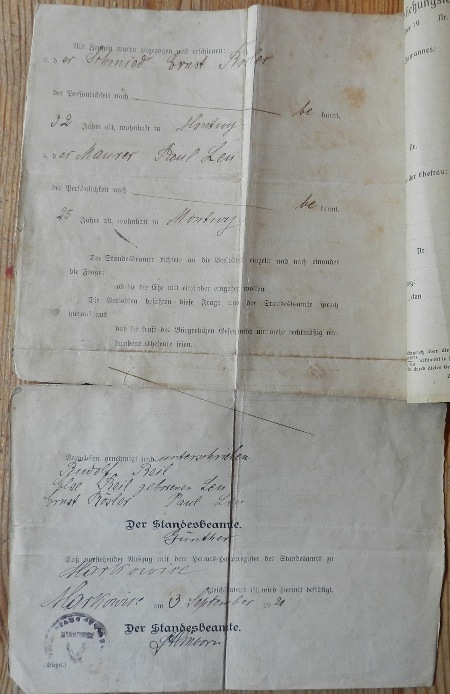 Als Zeugen waren zugezogen und erschienen:
3. der Schmied Ernst Rösler
der Persönlichkeit nach be kannt,
32 Jahre alt, wohnhaft in Montwy
4. der Maurer Paul Leu
der Persönlichkeit nach be kannt,
25 Jahre alt, wohnhaft in Montwy
Der Standesbeamte richtete an die Verlobten einzeln und nach einander
die Frage:
ob sie die Ehe mit einander eingehen wollen
Die Verlobten bejahten diese Frage und der Standesbeamte sprach
hierauf aus
daß sie kraft des Bürgerlichen Gesetzbuchs nunmehr rechtmäßig ver-
bundene Eheleute seien.
Vorgelesen, genehmigt und unterschrieben
Rudolf Beil
Else Beil geborenen Leu
Ernst Rösler Paul Leu
Der Standesbeamte.
Günther
Daß vorstehender Auszug mit dem Heirats-Hauptregister des Standesamts zu
Markowice
gleichlautend ist, wird hiermit bestätigt.
Markowice am 3 September 1920
Der Standesbeamte.
(Siegel)
Nr.
der Ehefrau:
Nr.